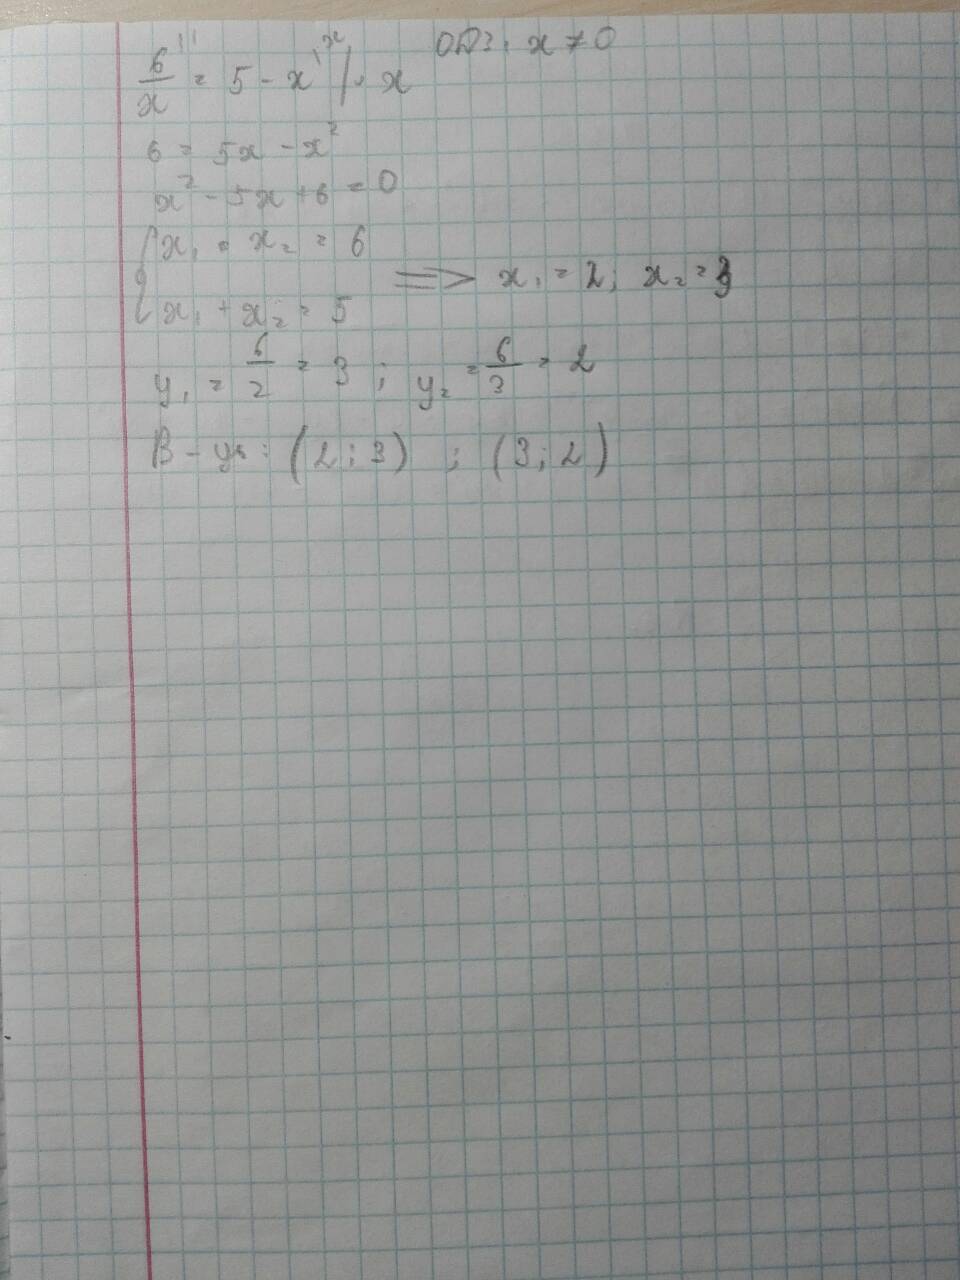 6/x = 5 - x | · x ОДЗ: x ≠ 0
6 = 5x - x²
x² - 5x + 6 = 0
{ x₁ · x₂ = 6
x₁ + x₂ = 5 => x₁ = 2; x₂ = 3
y₁ = 6/2 = 3 ; y₂ = 6/3 = 2
В-дь: (2; 3) ; (3; 2)